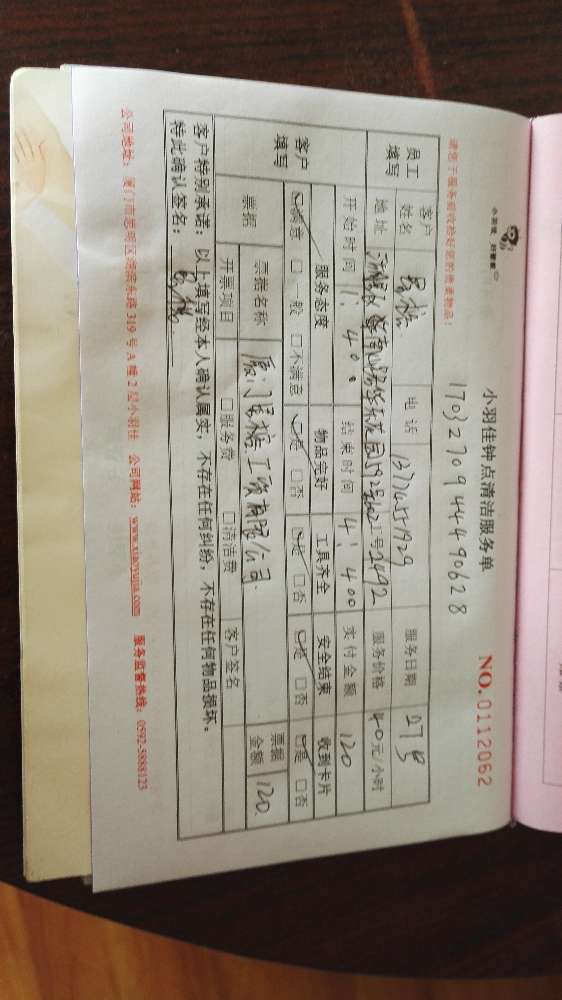 小羽佳，好管家
小羽佳钟点清洁服务单
NO.0112062
17032709444490628
请您于服务前收拾好您的贵重物品！
员工填写 客户姓名 电话 服务日期 27号
地址 服务价格 40元/小时
开始时间 1:400 结束时间 4:400 实付金额 120
客户填写 服务态度 物品完好 工具齐全 安全结束 收到卡片
☑满意 □一般 □不满意 ☑是 □否 ☑是 □否 ☑是 □否 ☑是 □否
票据 票据名称 工贸有限公司 票据金额 120
开票项目 □服务费 □清洁费 客户签名
客户特别承诺：以上填写经本人确认属实，不存在任何纠纷，不存在任何物品损坏。
特此确认签名：
公司地址：厦门市思明区湖滨东路319号A幢2层小羽佳 公司网站：www.xiaoyujia.com 服务监督热线：0592-5888123